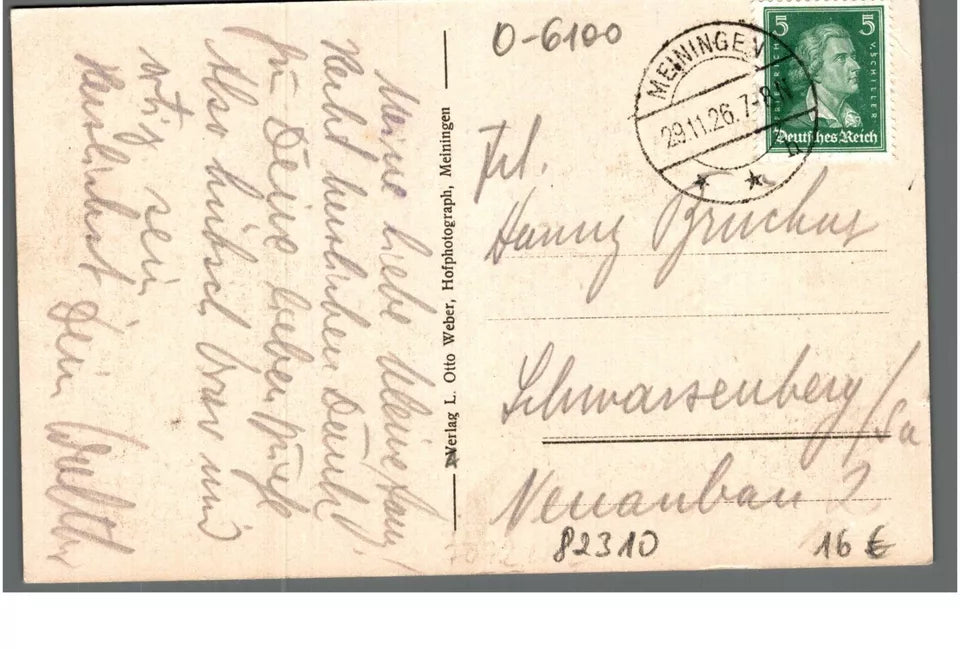 Meine liebe kleine Hanny!
Recht herzlichen Dank
für Deine lieben Grüße
Also hübsch brav und
artig sein
Herzlichst Dein Walther
Verlag L. Otto Weber, Hofphotograph, Meiningen
O-6100
MEININGEN
29.11.26. 7-8 N
5 5
FRIEDRICH V SCHILLER
Deutsches Reich
Frl.
Hanny Bruckus
Schwarzenberg/Sa
Neuanbau 2
82310
16 €